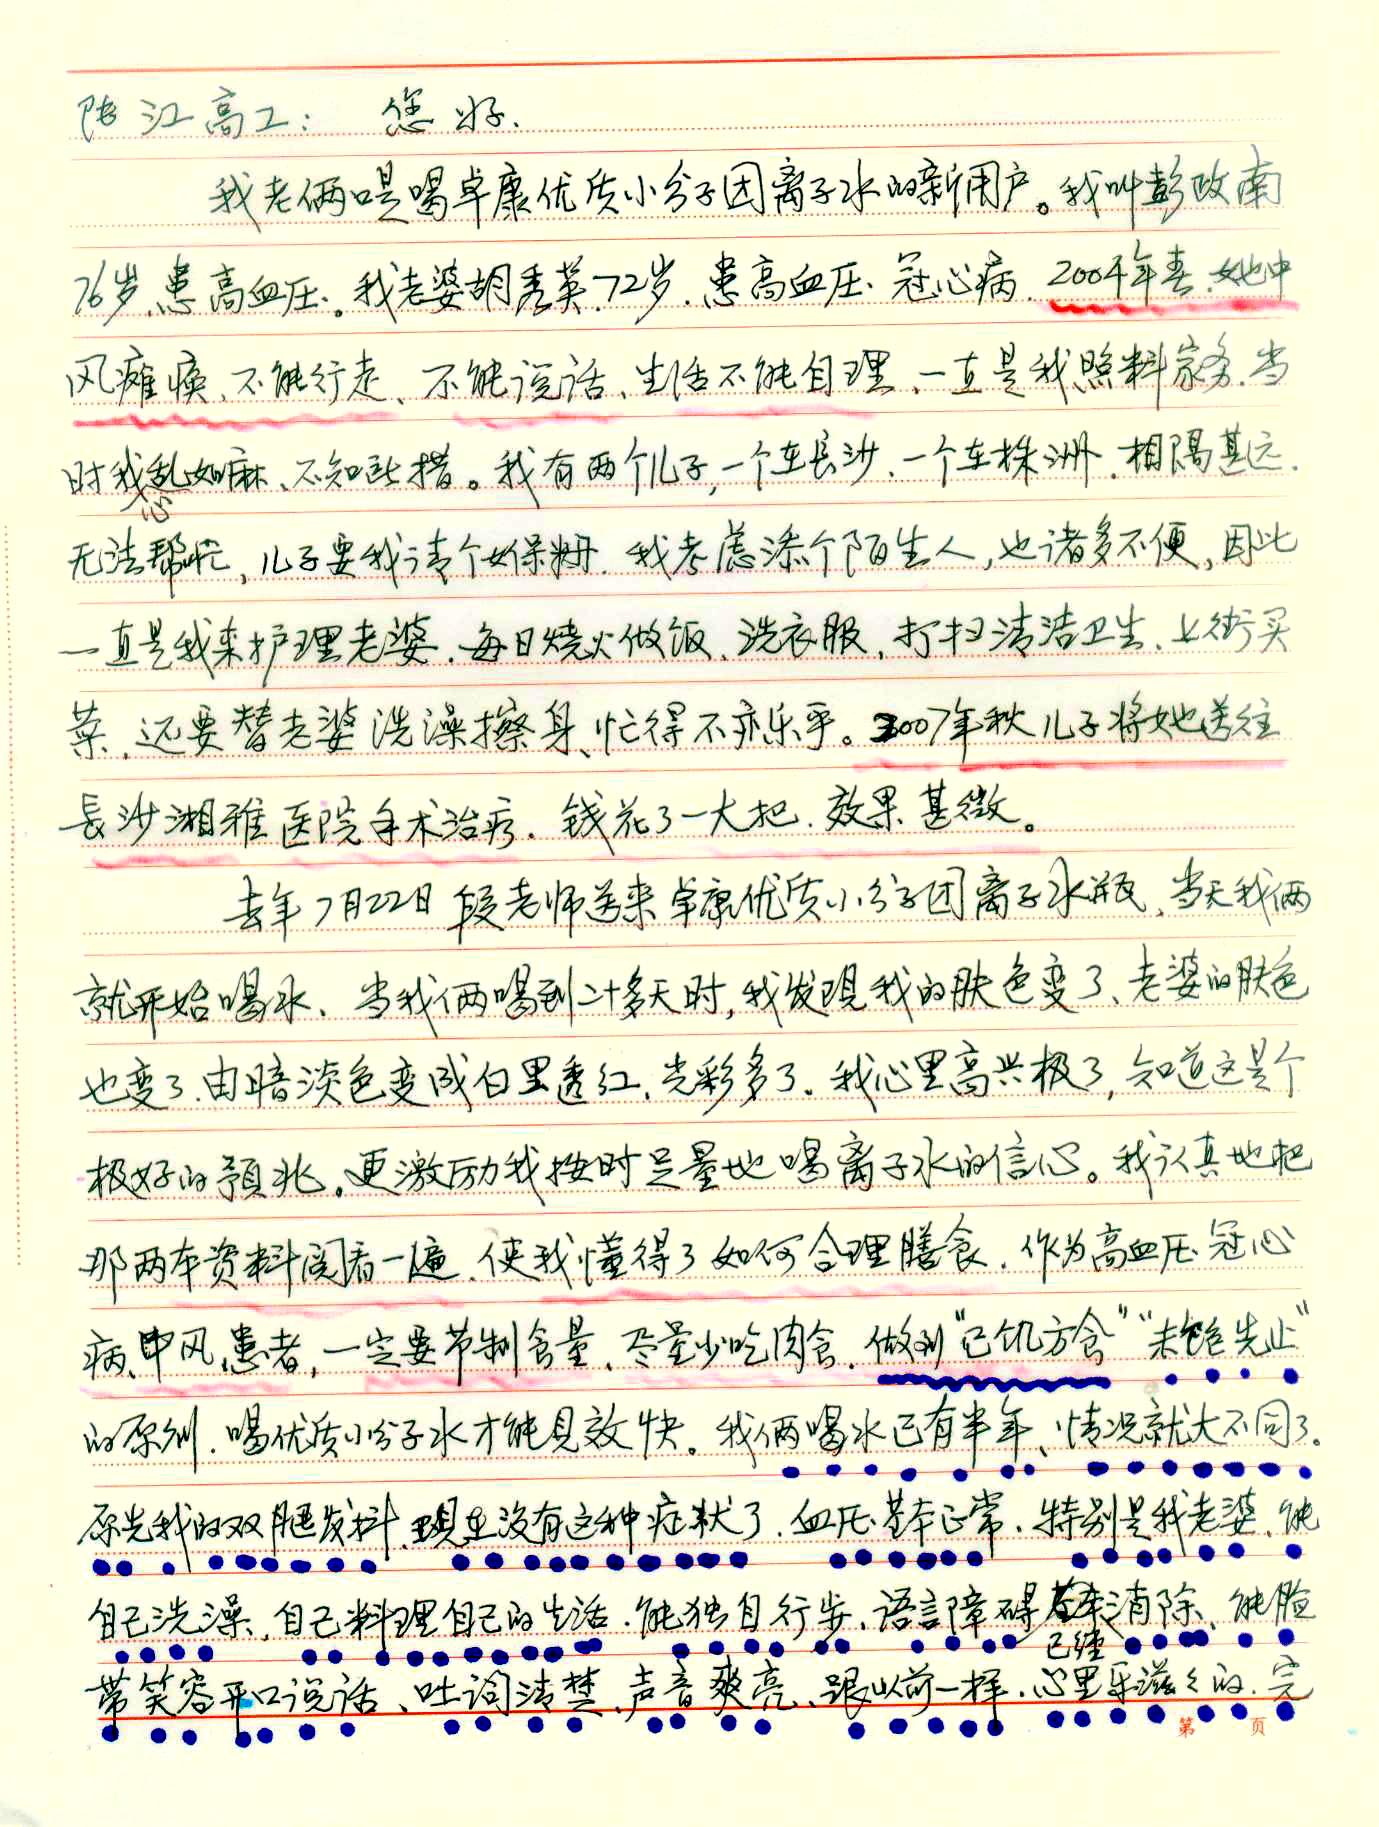 陆江高工：您好.
我老俩口是喝卓康优质小分子团离子水的新用户。我叫彭政南
76岁、患高血压。我老婆胡秀英、72岁、患高血压、冠心病、2004年春、她中
风瘫痪、不能行走、不能说话、生活不能自理、一直是我照料家务、当
时我心乱如麻、不知所措。我有两个儿子，一个在長沙、一个在株洲、相隔甚远、
无法帮忙，儿子要我请个女保姆、我考虑添个陌生人，也诸多不便，因此
一直是我来护理老婆、每日烧火做饭、洗衣服、打扫清洁卫生、上街买
菜、还要替老婆洗澡擦身、忙得不亦乐乎。2007年秋儿子将她送往
長沙湘雅医院手术治疗、钱花了一大把、效果甚微。
去年7月22日段老师送来卓康优质小分子团离子水瓶、当天我俩
就开始喝水、当我俩喝到二十多天时，我发现我的肤色变了、老婆的肤色
也变了、由暗淡色变成白里透红、光彩多了、我心里高兴极了，知道这是个
极好的预兆。更激励我按时足量地喝离子水的信心。我认真地把
那两本资料阅看一遍、使我懂得了如何合理膳食、作为高血压、冠心
病、中风、患者，一定要节制含量、尽量少吃肉食、做到"已饥方食""未饱先止"
的原则、喝优质小分子水才能见效快。我俩喝水已有半年、情况就大不同了。
原先我的双腿发抖、现在没有这种症状了、血压基本正常、特别是我老婆、能
自己洗澡、自己料理自己的生活、能独自行步、语言障碍已经消除、能脸
带笑容开口说话、吐词清楚、声音爽亮、跟以前一样、心里乐滋々的、完
第 页